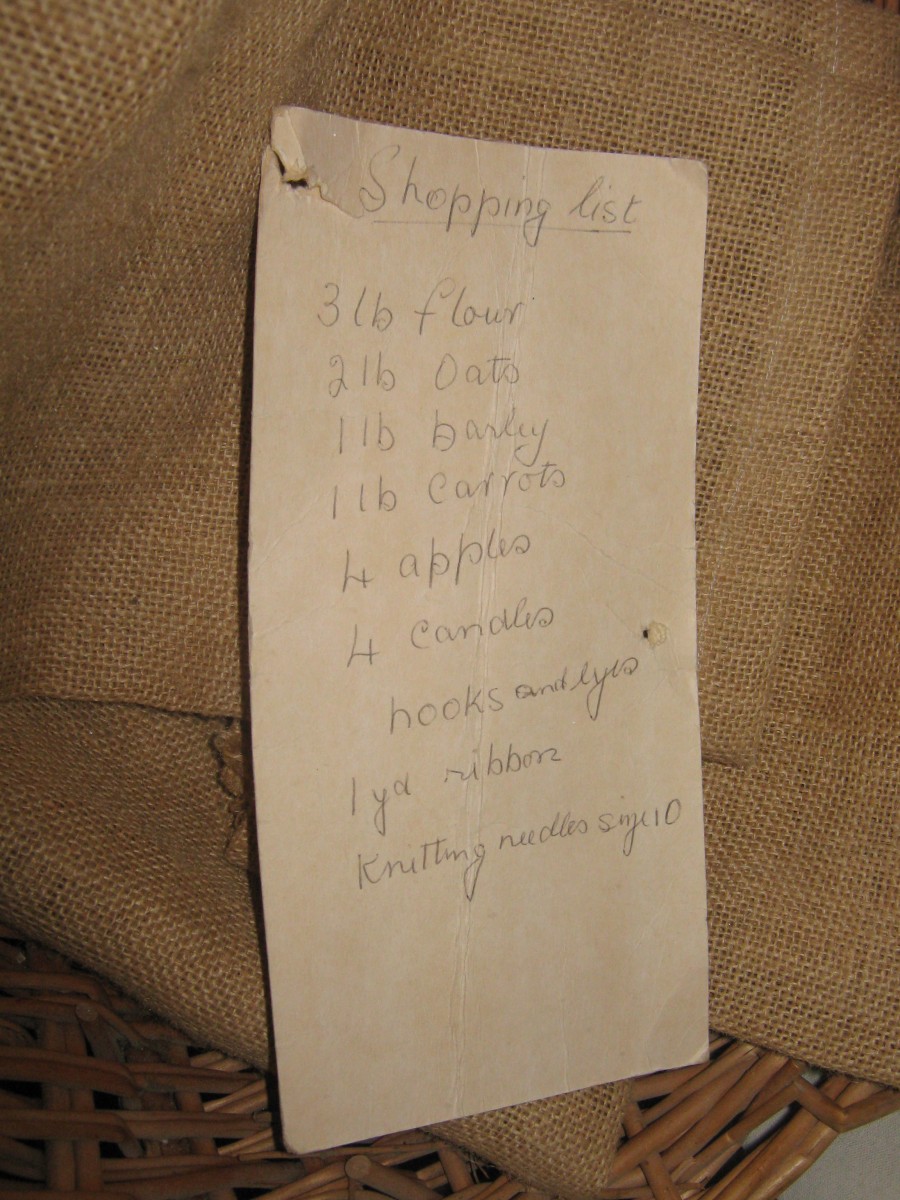 Shopping list
3 lb flour
2 lb Oats
1 lb barley
1 lb Carrots
4 apples
4 Candles
hooks and eyes
1 yd ribbon
Knitting needles size 10